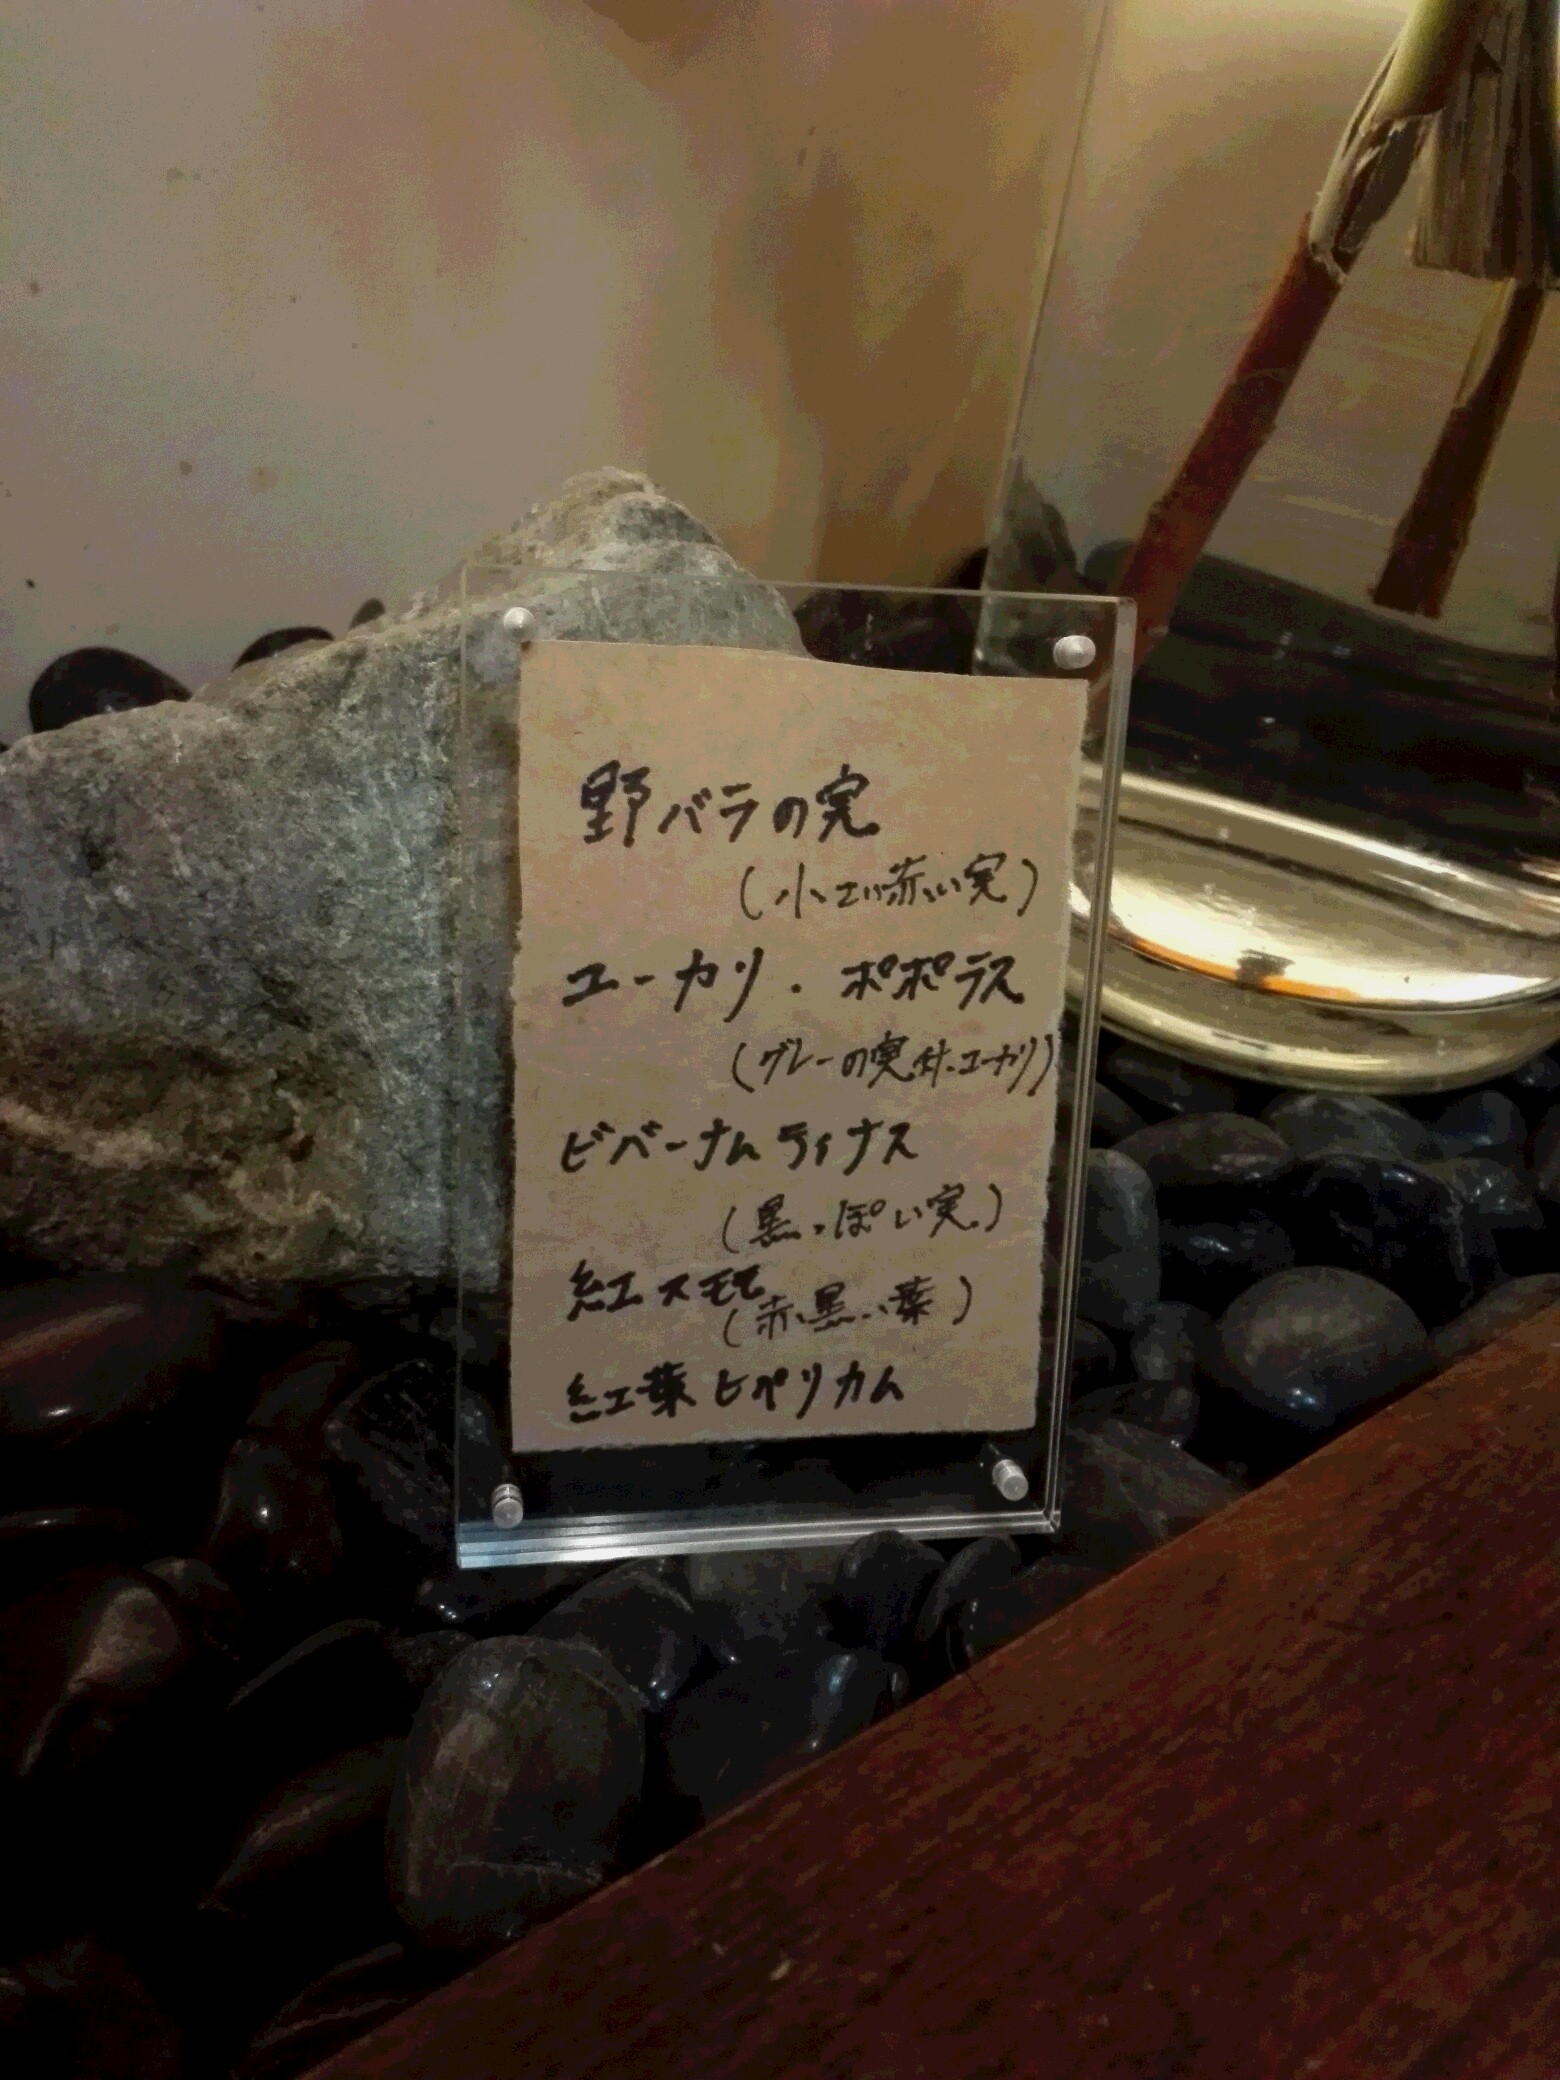 野バラの実
(小さい赤い実)
ユーカリ・ポポラス
(グレーの実付ユーカリ)
ビバーナムティナス
(黒っぽい実)
紅スモモ
(赤黒い葉)
紅葉ヒペリカム